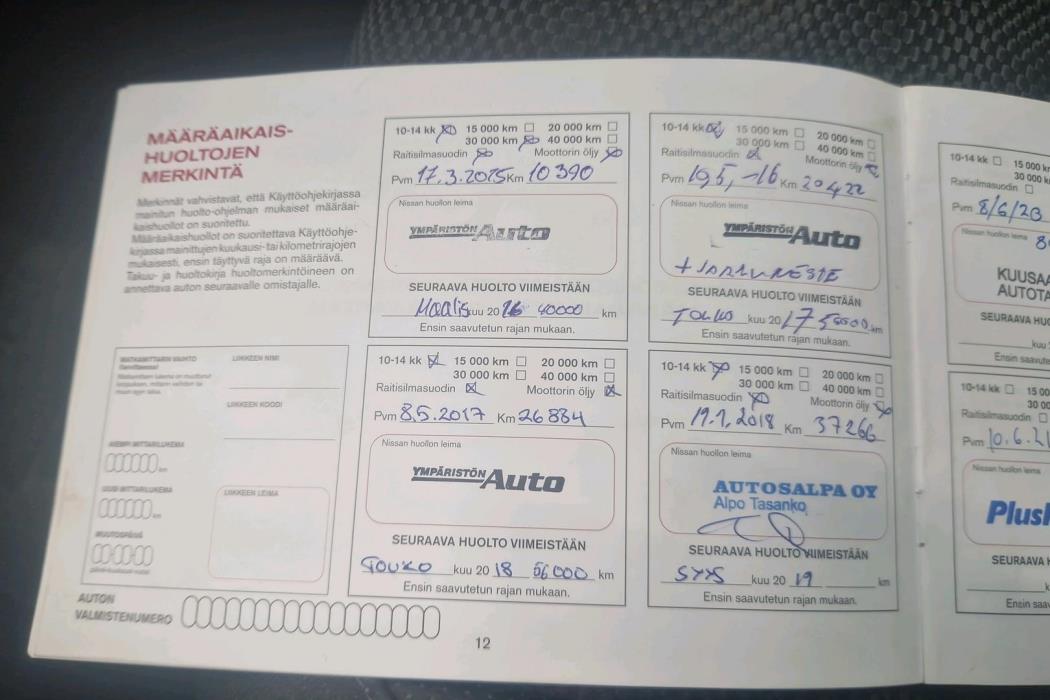 MÄÄRÄAIKAIS-
HUOLTOJEN
MERKINTÄ
Merkinnät vahvistavat, että Käyttöohjekirjassa
mainitun huolto-ohjelman mukaiset määräai-
kaishuollot on suoritettu.
Määräaikaishuollot on suoritettava Käyttöohje-
kirjassa mainittujen kuukausi- tai kilometrirajojen
mukaisesti, ensin täyttyvä raja on määräävä.
Takuu- ja huoltokirja huoltomerkintöineen on
annettava auton seuraavalle omistajalle.
MATKAMITTARIN VAIHTO
LIIKKEEN NIMI
LIIKKEEN KOODI
AIEMPI MITTARILUKEMA
km
UUSI MITTARILUKEMA
km
MUUTOSPÄIVÄ
LIIKKEEN LEIMA
AUTON
VALMISTENUMERO
10-14 kk 15 000 km 20 000 km
30 000 km 40 000 km
Raitisilmasuodin Moottorin öljy
Pvm 17.3.2015 Km 10390
Nissan huollon leima
YMPÄRISTÖN Auto
SEURAAVA HUOLTO VIIMEISTÄÄN
Maalis kuu 20 16 40000 km
Ensin saavutetun rajan mukaan.
10-14 kk 15 000 km 20 000 km
30 000 km 40 000 km
Raitisilmasuodin Moottorin öljy
Pvm 19.5.-16 Km 20422
Nissan huollon leima
YMPÄRISTÖN Auto
+ JARRUNESTE
SEURAAVA HUOLTO VIIMEISTÄÄN
TOUKO kuu 20 17 km
Ensin saavutetun rajan mukaan.
10-14 kk 15 000 km 20 000 km
30 000 km 40 000 km
Raitisilmasuodin Moottorin öljy
Pvm 8.5.2017 Km 26884
Nissan huollon leima
YMPÄRISTÖN Auto
SEURAAVA HUOLTO VIIMEISTÄÄN
TOUKO kuu 20 18 56000 km
Ensin saavutetun rajan mukaan.
10-14 kk 15 000 km 20 000 km
30 000 km 40 000 km
Raitisilmasuodin Moottorin öljy
Pvm 19.9.2018 Km 37266
Nissan huollon leima
AUTOSALPA OY
Alpo Tasanko
SEURAAVA HUOLTO VIIMEISTÄÄN
SYYS kuu 20 19 km
Ensin saavutetun rajan mukaan.
12
10-14 kk 15 000
30 000
Raitisilmasuodin
Pvm 8/6/20
Nissan huollon leima
KUUSA
AUTOTA
SEURAAVA HUO
kuu
Ensin saavute
10-14 kk 15 0
30 00
Raitisilmasuodin
Pvm 10.6.21
Nissan huollon leima
Plus
SEURAAVA H
Ensin saavu